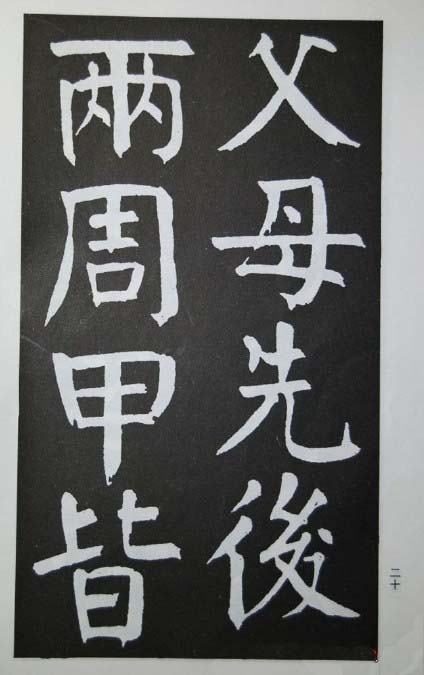 父母先後
兩周甲皆
二十